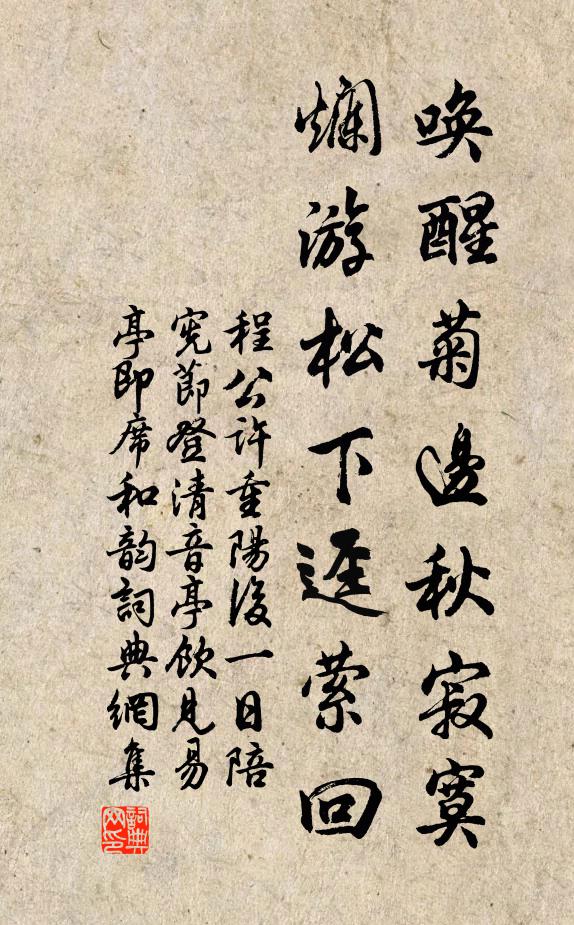 喚醒菊邊秋寂寞
爛游松下逕縈回
程公許重陽後一日陪
憲節登清音亭飲見易
亭即席和韵詞典網集
詞典網印